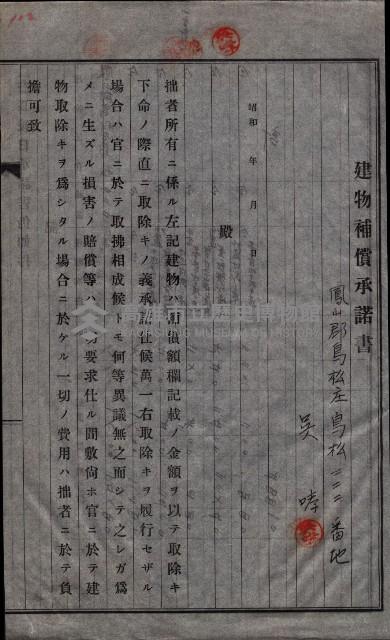 建物補償承諾書
鳳山郡鳥松庄鳥松二二二番地
吳 哮
昭和 年 月 日
殿
拙者所有ニ係ル左記建物ハ補償額欄記載ノ金額ヲ以テ取除キ
下命ノ際直ニ取除キノ義承諾仕候萬一右取除キヲ履行セザル
場合ハ官ニ於テ取拂相成候トモ何等異議無之而シテ之レガ爲
メニ生ズル損害ノ賠償等ハ一切要求仕ル間敷尙ホ官ニ於テ建
物取除キヲ爲シタル場合ニ於ケル一切ノ費用ハ拙者ニ於テ負
擔可致